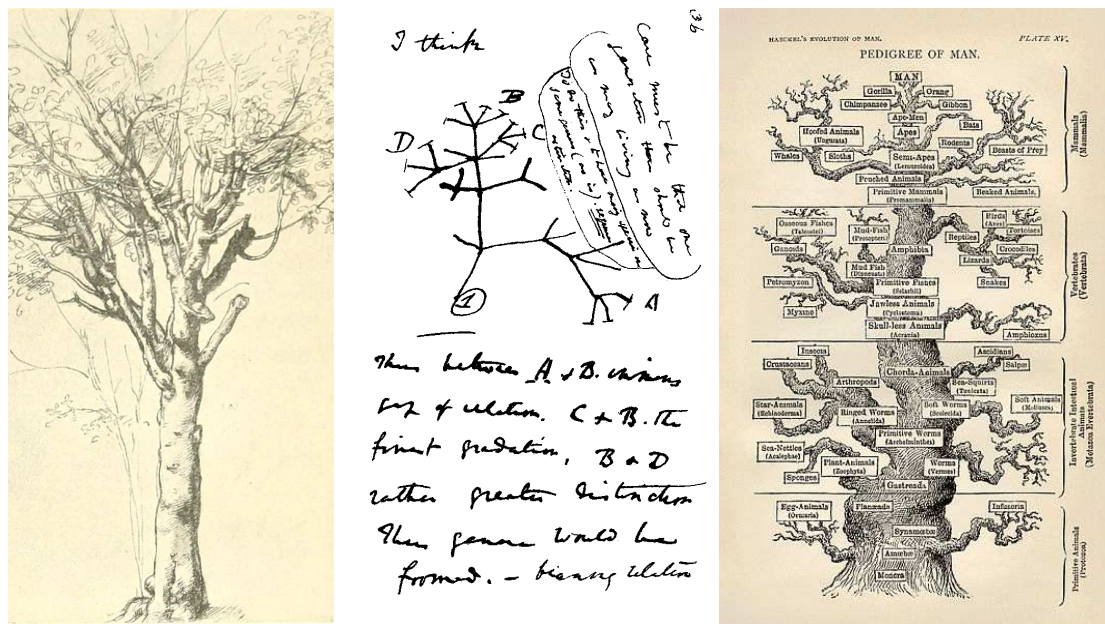 I think
36
Case must be that one
generation then should be
as many living as now
To do this & to have many species in
same genus (as is) requires
extinction.
B
D
C
A
1
Thus between A & B. immens
gap of relation. C & B. the
finest gradation, B & D
rather greater distinction
Thus genera would be
formed. — bearing relation
HAECKEL'S EVOLUTION OF MAN.
PLATE XV.
PEDIGREE OF MAN.
MAN
Gorilla
Orang
Chimpanzee
Gibbon
Ape-Men
Bats
Apes
Hoofed Animals
(Ungulata)
Rodents
Beasts of Prey
Whales
Sloths
Semi-Apes
(Lemuroidea)
Pouched Animals
Primitive Mammals
(Promammalia)
Beaked Animals.
Mammals
(Mammalia)
Osseous Fishes
(Teleostei)
Mud-Fish
(Protopteri)
Birds
(Aves)
Tortoises
Ganoids
Amphibia
Reptiles
Crocodiles
Lizards
Mud Fish
(Dipneusta)
Snakes
Petromyzon
Primitive Fishes
(Selachii)
Jawless Animals
(Cyclostoma)
Myxine
Skull-less Animals
(Acrania)
Amphioxus
Vertebrates
(Vertebrata)
Insects
Ascidians
Crustaceans
Chorda-Animals
Salpæ
Arthropods
Sea-Squirts
(Tunicata)
Star-Animals
(Echinoderma)
Ringed Worms
(Annelida)
Soft Worms
(Scolecida)
Soft Animals
(Mollusca)
Primitive Worms
(Archelminthes)
Sea-Nettles
(Acalephae)
Plant-Animals
(Zoophyta)
Worms
(Vermes)
Sponges
Gastreada
Invertebrate Intestinal
Animals
(Metazoa Evertebrata)
Egg-Animals
(Ovularia)
Planæada
Infusoria
Synamœbæ
Amœbæ
Monera
Primitive Animals
(Protozoa)